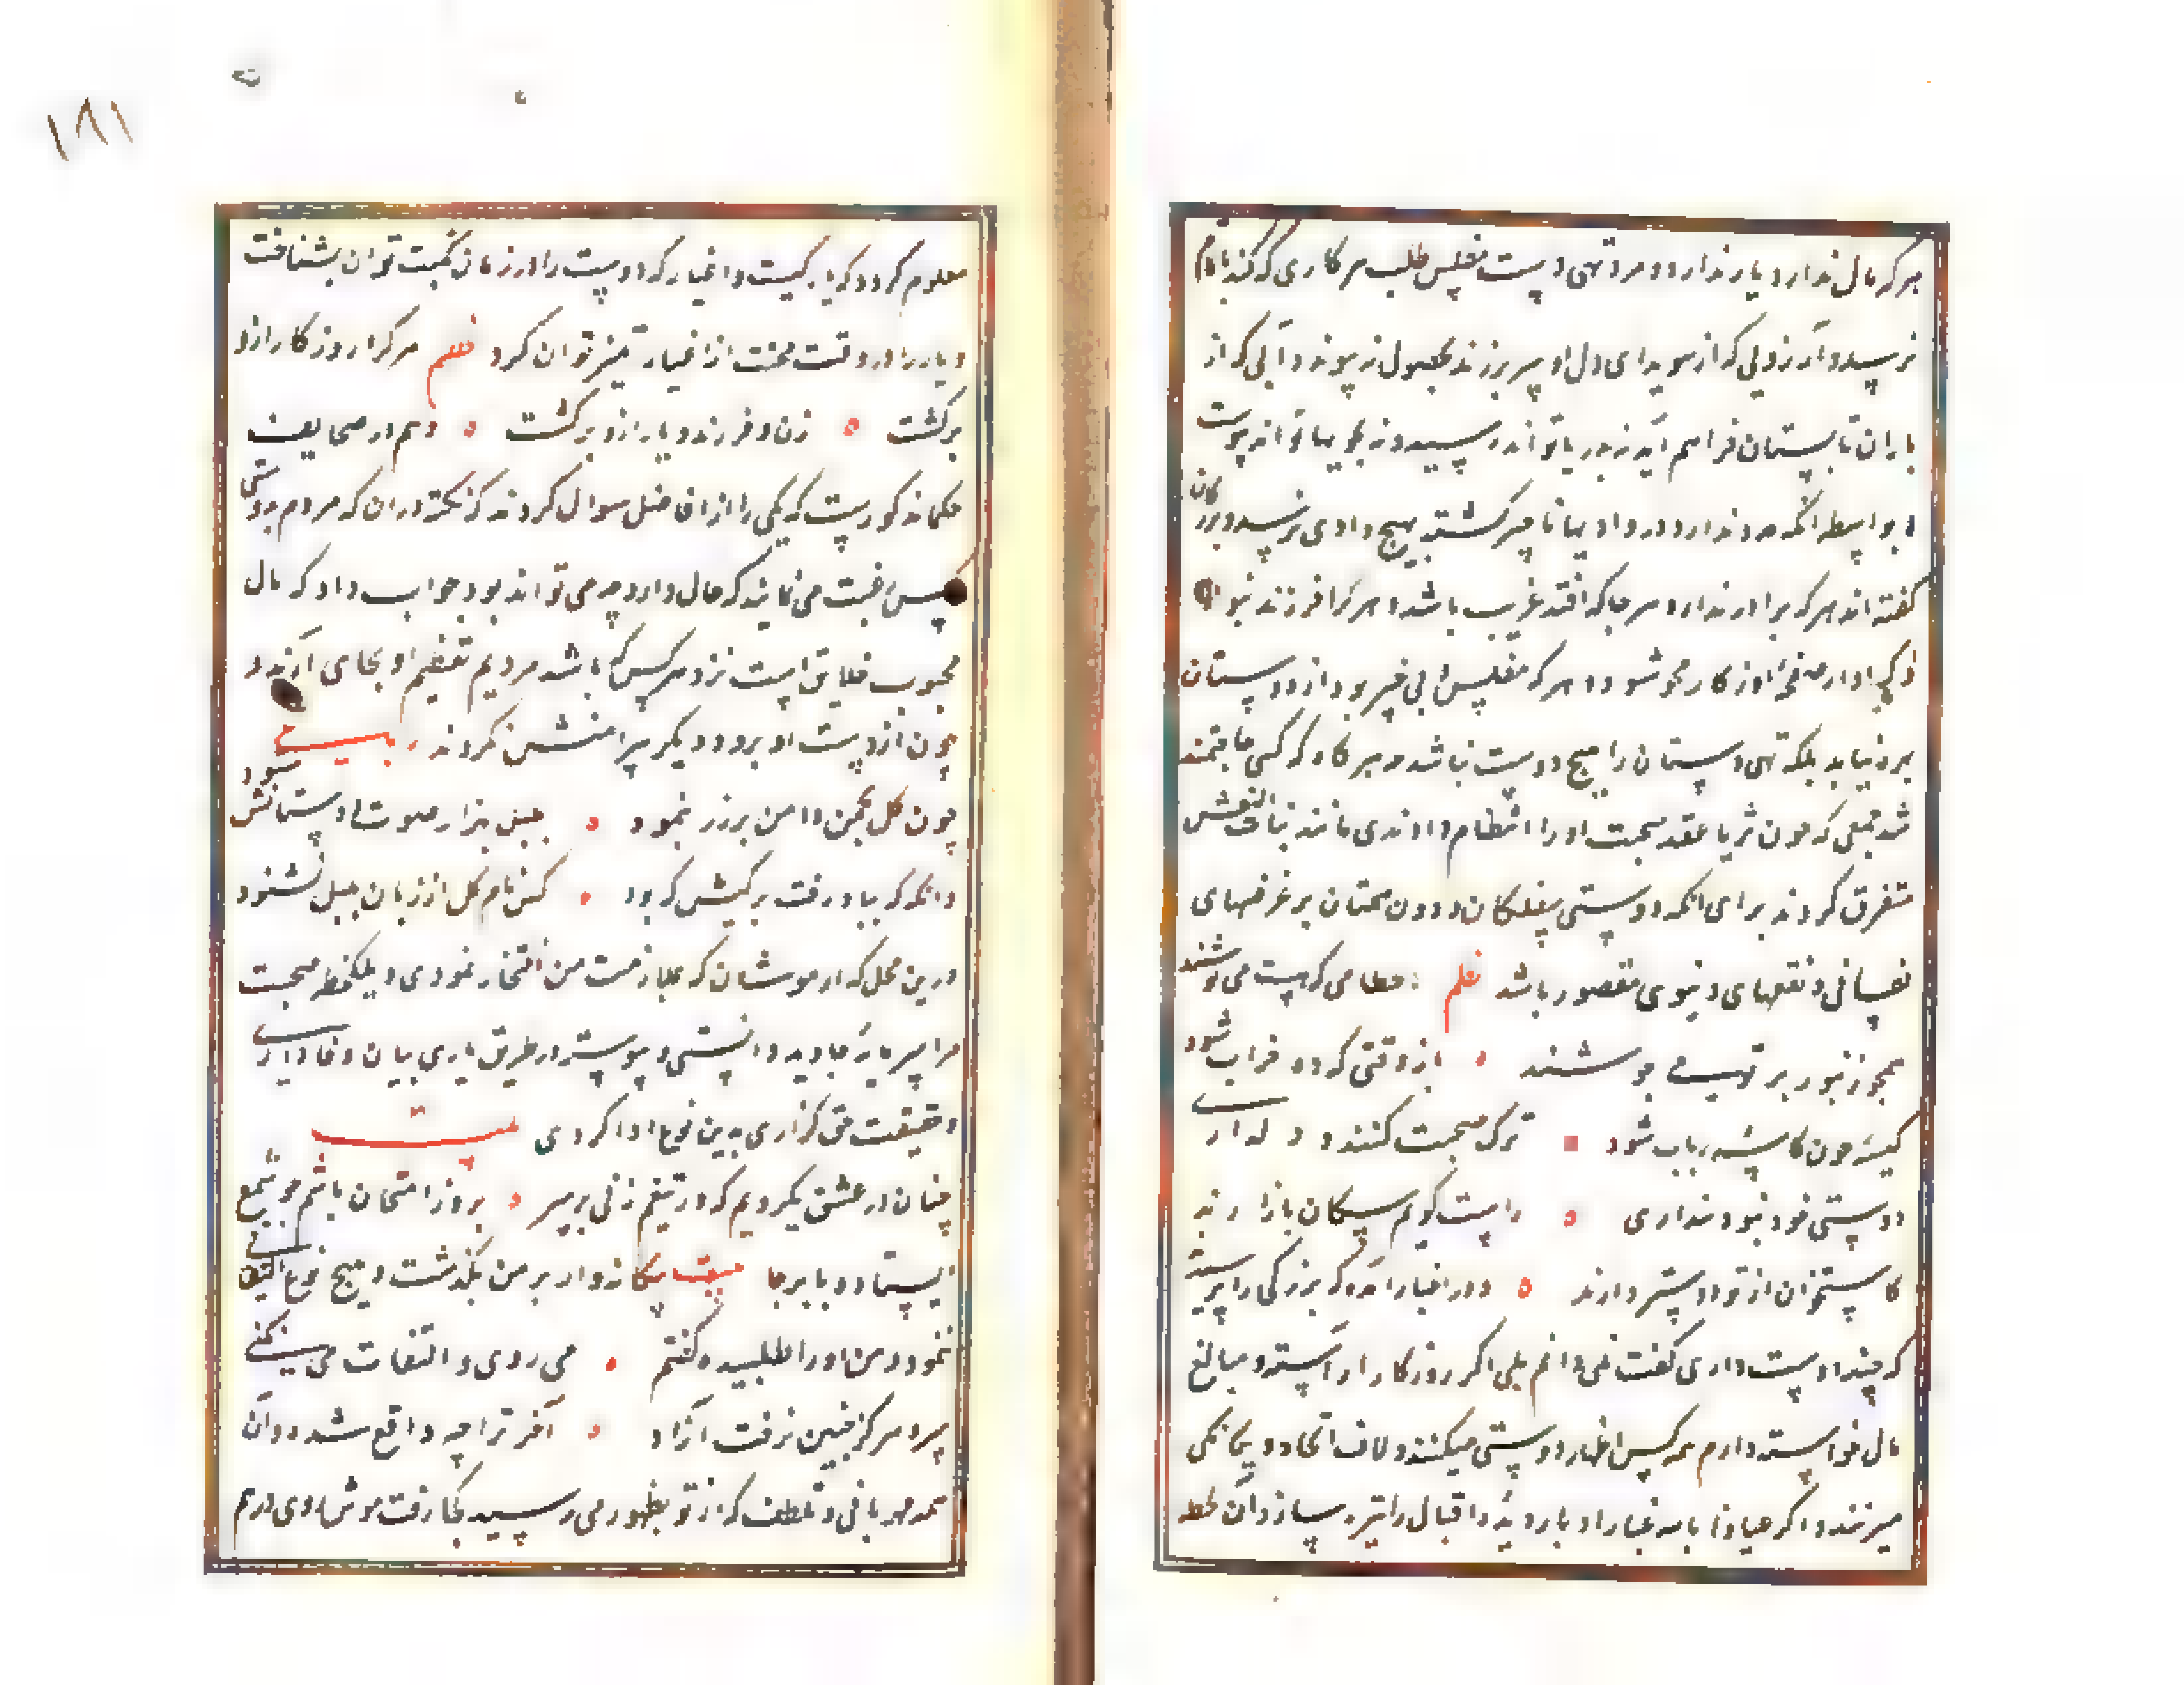 هر که مال ندارد یار ندارد و مرد تهی دست مفلس طلب هر کاری که کند باتمام
نرسد و آرزویی که از سویدای دل او سر برزند بحصول نه پیوندد آبی که از
باران تابستان فراهم آید نه بدریا تواند رسید و نه بجویها تواند پیوست
بواسطه آنکه مدد ندارد و در وادیها ناچیز گشته بهیچ وادی نرسد و بزرگان
گفته اند هر که برادر ندارد هر جا که افتد غریب باشد و هر کرا فرزند نبود
ذکر او از صفحه روزگار محو شود و هر که مفلس بی خیر بود از دوستان
بر نیابد بلکه تهی دستان را هیچ دوست نباشد و هر گاه که کسی حاجتمند
شد جمعی که چون ثریا عقد صحبت او را انتظام دادندی مانند بنات النعش
متفرق گردند برای آنکه دوستی سفلگان و دون همتان بر غرضهای
نفسانی و نفعهای دنیوی مقصور باشد نظم تا حطامی که هست می نوشند
همچو زنبور بر تو می جوشند باز وقتی که ده خراب شود
کیسه چون کاسه رباب شود ترک صحبت کنند و دلداری
دوستی خود نبود پنداری راست گویم سگان بازارند
کاستخوان از تو دوستر دارند و در اخبار آمده که بزرگی را پرسیدند
که چند دوست داری گفت نمی دانم بلی اگر روزگار آراسته و مبالغ
مال خواسته دارم همه کس اظهار دوستی میکنند و لاف اتحاد و یگانگی
میزنند و اگر عیاذا بالله غبار ادبار دیده اقبال را تیره سازد آن لحظه
۱۸۱
معلوم گردد که یار کیست و اغیار که دوست را در زمان نکبت توان شناخت
و یار را در وقت محنت از اغیار تمیز توان کرد نظم هر کرا روزگار ازو
برگشت زن و فرزند و یار ازو برگشت و هم در صحایف
حکما مذکورست که یکی را از افاضل سوال کردند که نکته در آن که مردم بدوستی
کس رغبت می نمایند که مال دارد چه می تواند بود جواب داد که مال
محبوب خلایق است نزد هر کس که باشد مردم تعظیم او بجای آرند و
چون از دست او برود دیگر پیرامنش نگردند بیت
چون گل بچمن دامن پر زر نمود بلبل بهزار صوت دستانش سرود
وانگه که بباد رفت برگیش که بود کس نام گل از زبان بلبل نشنود
درین محل که از موشان که بملازمت من افتخار نمودی و یک لحظه صحبت
مرا سرمایه جاوید دانستی و پیوسته در طریق یاری بیان وفاداری
و حقیقت حق گزاری بدین نوع ادا کردی بیت
چنان در عشق یکرویم که در تیغم زنی بر سر بروز امتحان باشم چو شمع
ایستاده پا بر جا بیگانه وار بر من بگذشت و هیچ نوع التفاتی
ننمود و من او را طلبیده گفتم می روی و التفات می نکنی
سرو هرگز چنین نرفت آزاد آخر ترا چه واقع شده و آن
همه مهربانی و تلطف که از تو بظهور می رسید کجا رفت موش روی درهم